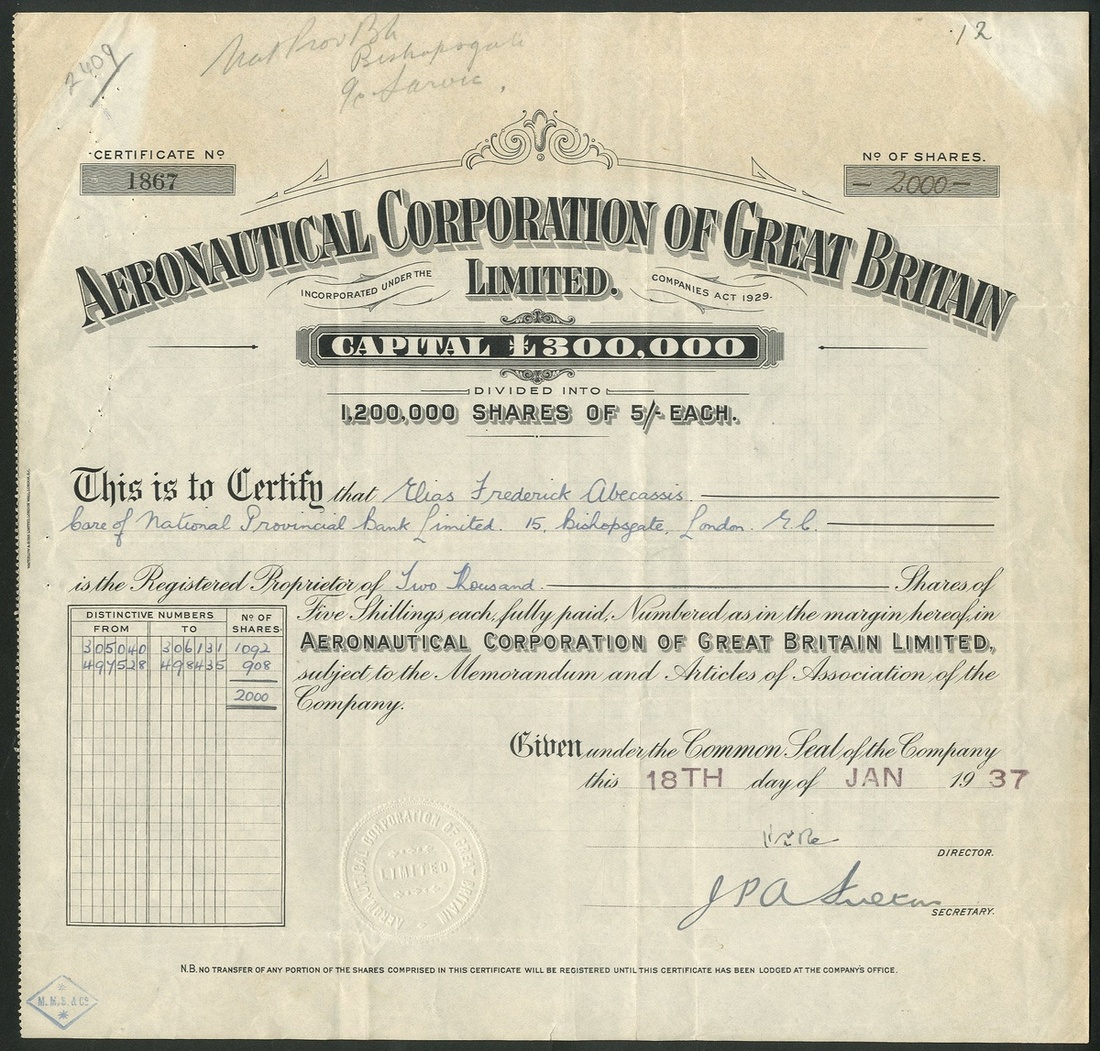 2409
Nat Prov Bk
Bishopsgate
12
CERTIFICATE Nº
1867
Nº OF SHARES.
— 2000 —
AERONAUTICAL CORPORATION OF GREAT BRITAIN
LIMITED.
INCORPORATED UNDER THE
COMPANIES ACT 1929.
CAPITAL £300,000
DIVIDED INTO
1,200,000 SHARES OF 5/- EACH.
This is to Certify that Elias Frederick Abecassis.
Care of National Provincial Bank Limited. 15, Bishopsgate, London. E.C.
is the Registered Proprietor of Two Thousand. Shares of
Five Shillings each, fully paid, Numbered as in the margin hereof, in
AERONAUTICAL CORPORATION OF GREAT BRITAIN LIMITED,
subject to the Memorandum and Articles of Association of the
Company.
DISTINCTIVE NUMBERS Nº OF
FROM TO SHARES
305040 306131 1092
497528 498435 908
2000
Given under the Common Seal of the Company
this 18TH day of JAN 1937
DIRECTOR.
J P A
SECRETARY.
AERONAUTICAL CORPORATION OF GREAT BRITAIN
LIMITED
N.B. NO TRANSFER OF ANY PORTION OF THE SHARES COMPRISED IN THIS CERTIFICATE WILL BE REGISTERED UNTIL THIS CERTIFICATE HAS BEEN LODGED AT THE COMPANY'S OFFICE.
M. M. S. & Cº